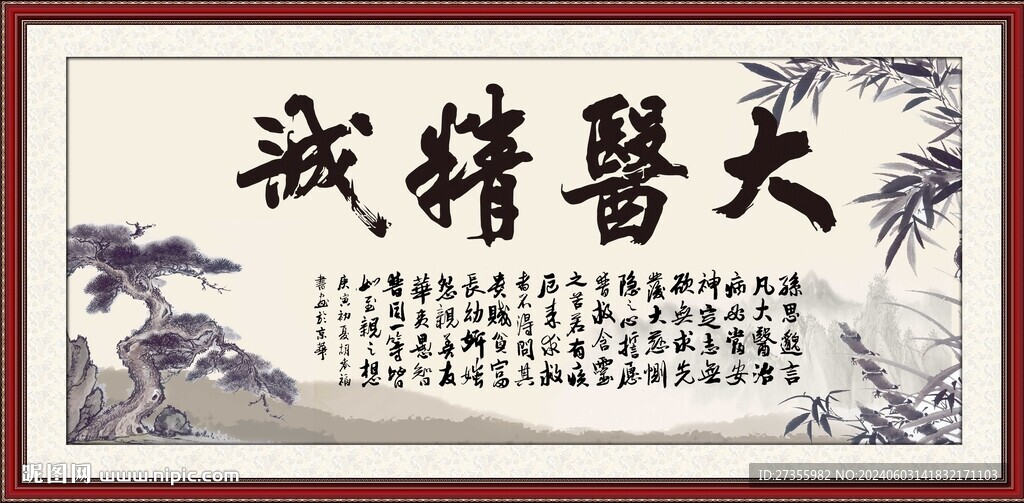 大醫精誠
孫思邈言
凡大醫治
病必當安
神定志無
欲無求先
發大慈惻
隱之心誓愿
普救含靈
之苦若有疾
厄来求救
者不得問其
貴賤貧富
長幼妍媸
怨親善友
華夷愚智
普同一等皆
如至親之想
庚寅初夏胡
於京華
昵图网 www.nipic.com
ID:27355982 NO:20240603141832171103